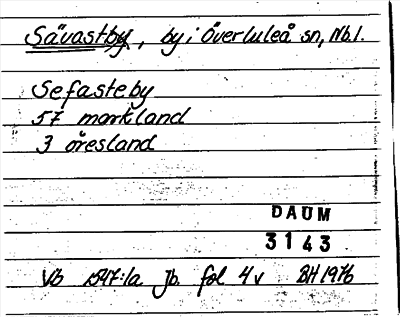 Sävastby, by i Överluleå sn, Nb.l.
Sefasteby
57 markland
3 öresland
DAUM
3143
Vb 1547:1a Jb. fol 4v BH 1976